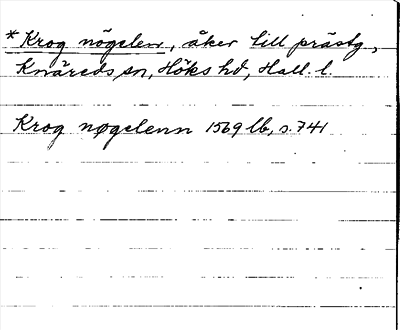 *Krog nögelen, åker till prästg,
Knäreds sn, Höks hd, Hall. l.
Krog nøgelenn 1569 lb, s. 741